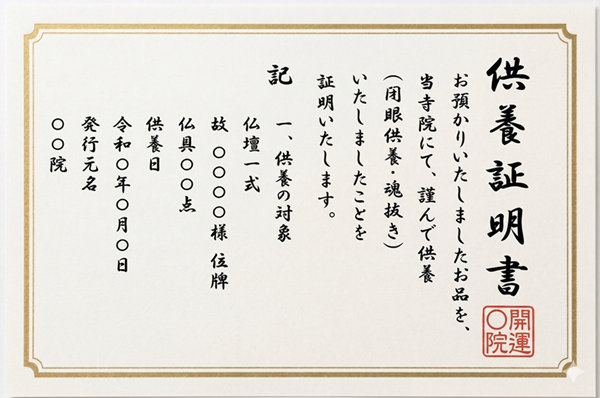 供養証明書
お預かりいたしましたお品を、
当寺院にて、謹んで供養
(閉眼供養・魂抜き)
いたしましたことを
証明いたします。
記
一、供養の対象
仏壇一式
故 〇〇〇〇様 位牌
仏具〇〇点
供養日
令和〇年〇月〇日
発行元名
〇〇院
開運
〇院